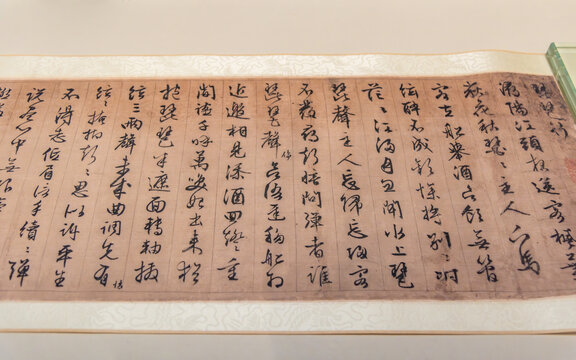 琵琶行
潯陽江頭夜送客楓葉
荻花秋瑟〻主人下馬
客在船舉酒欲飲無管
絃醉不成歡慘將別〻時
茫〻江浸月忽聞水上琵
琶聲主人忘歸客
不發尋聲暗問彈者誰
琵琶聲停欲語遲移船相
近邀相見添酒回燈重
開讌千呼萬喚始出來猶
抱琵琶半遮面轉軸撥
絃三兩聲未成曲調先有情
絃〻掩抑聲〻思似訴平生
不得志低眉信手續〻彈
說盡心中無限